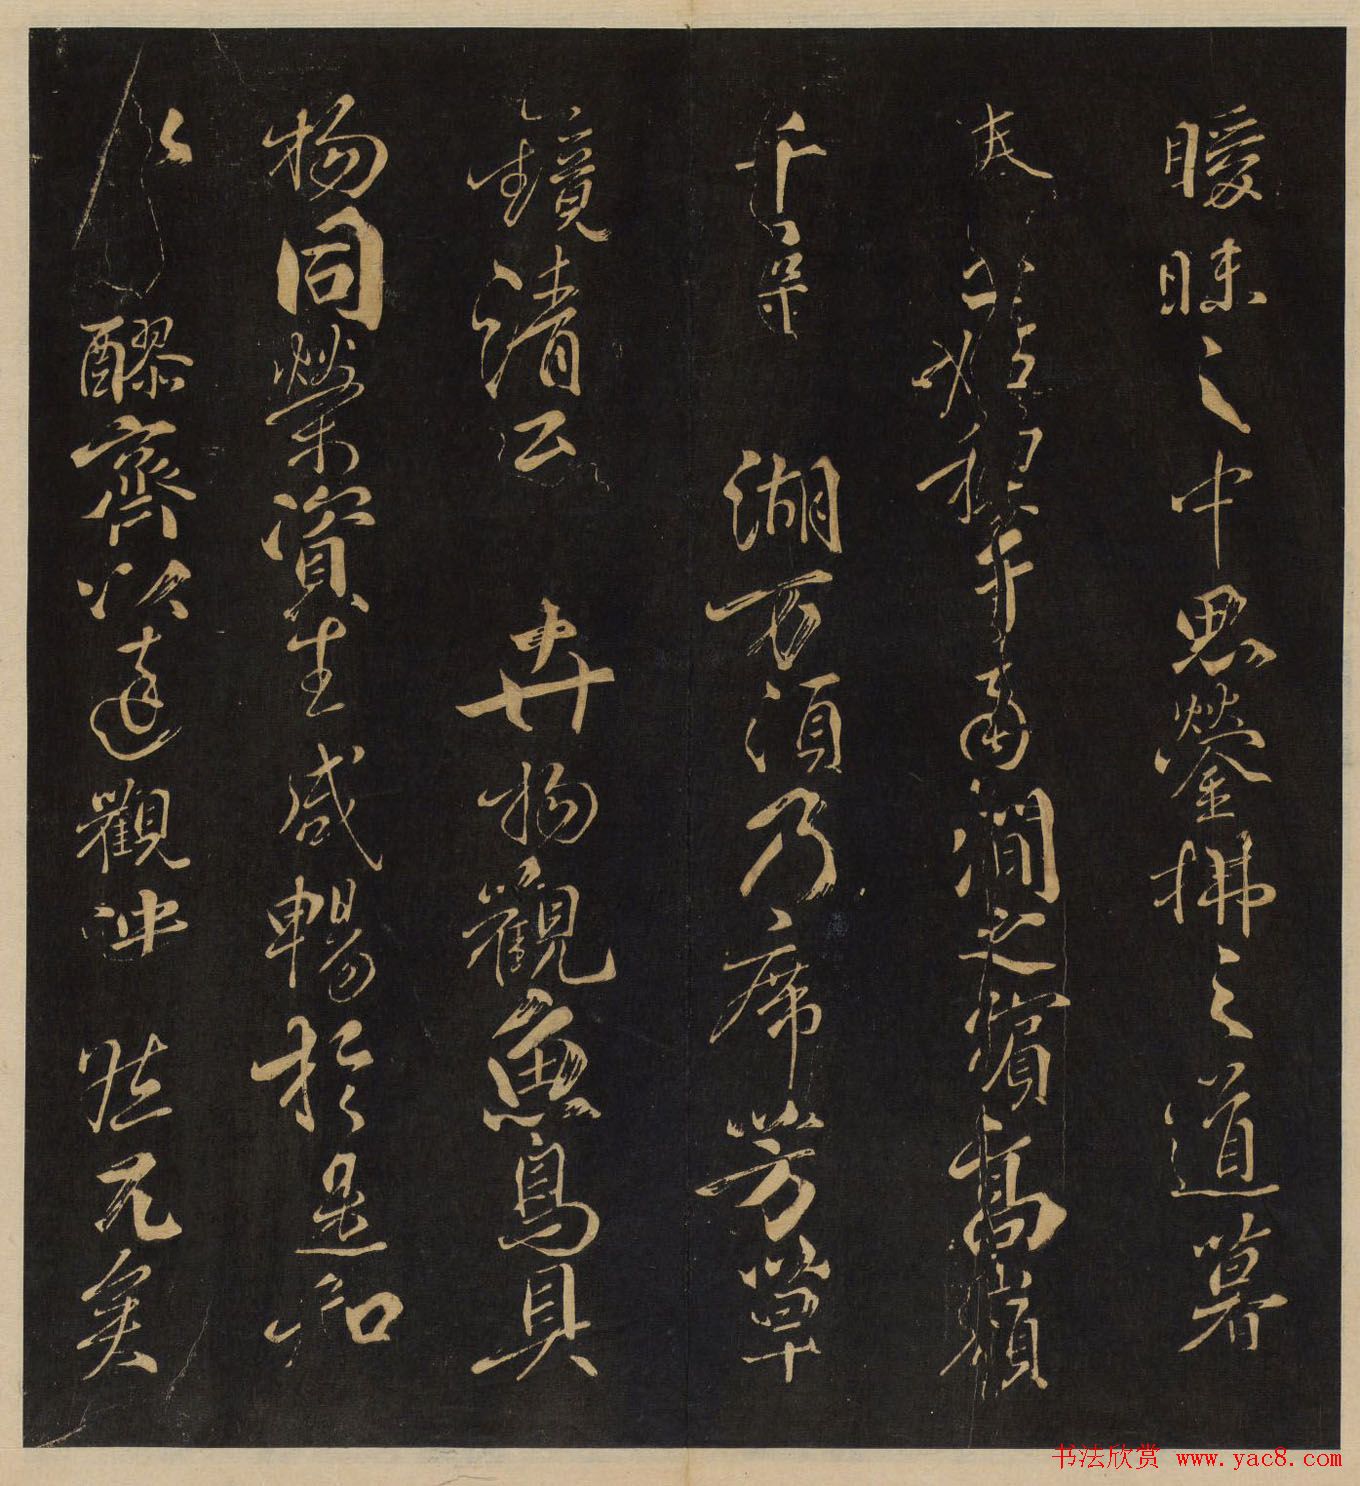 曖昧之中思鎣拂之道暮
春之始禊于南澗之濱高嶺
千尋湖萬頃乃席芳草
鏡清卉物觀魚鳥具
物同榮資生咸暢於是和
以醪齊以達觀然兀矣
书法欣赏 www.yac8.com